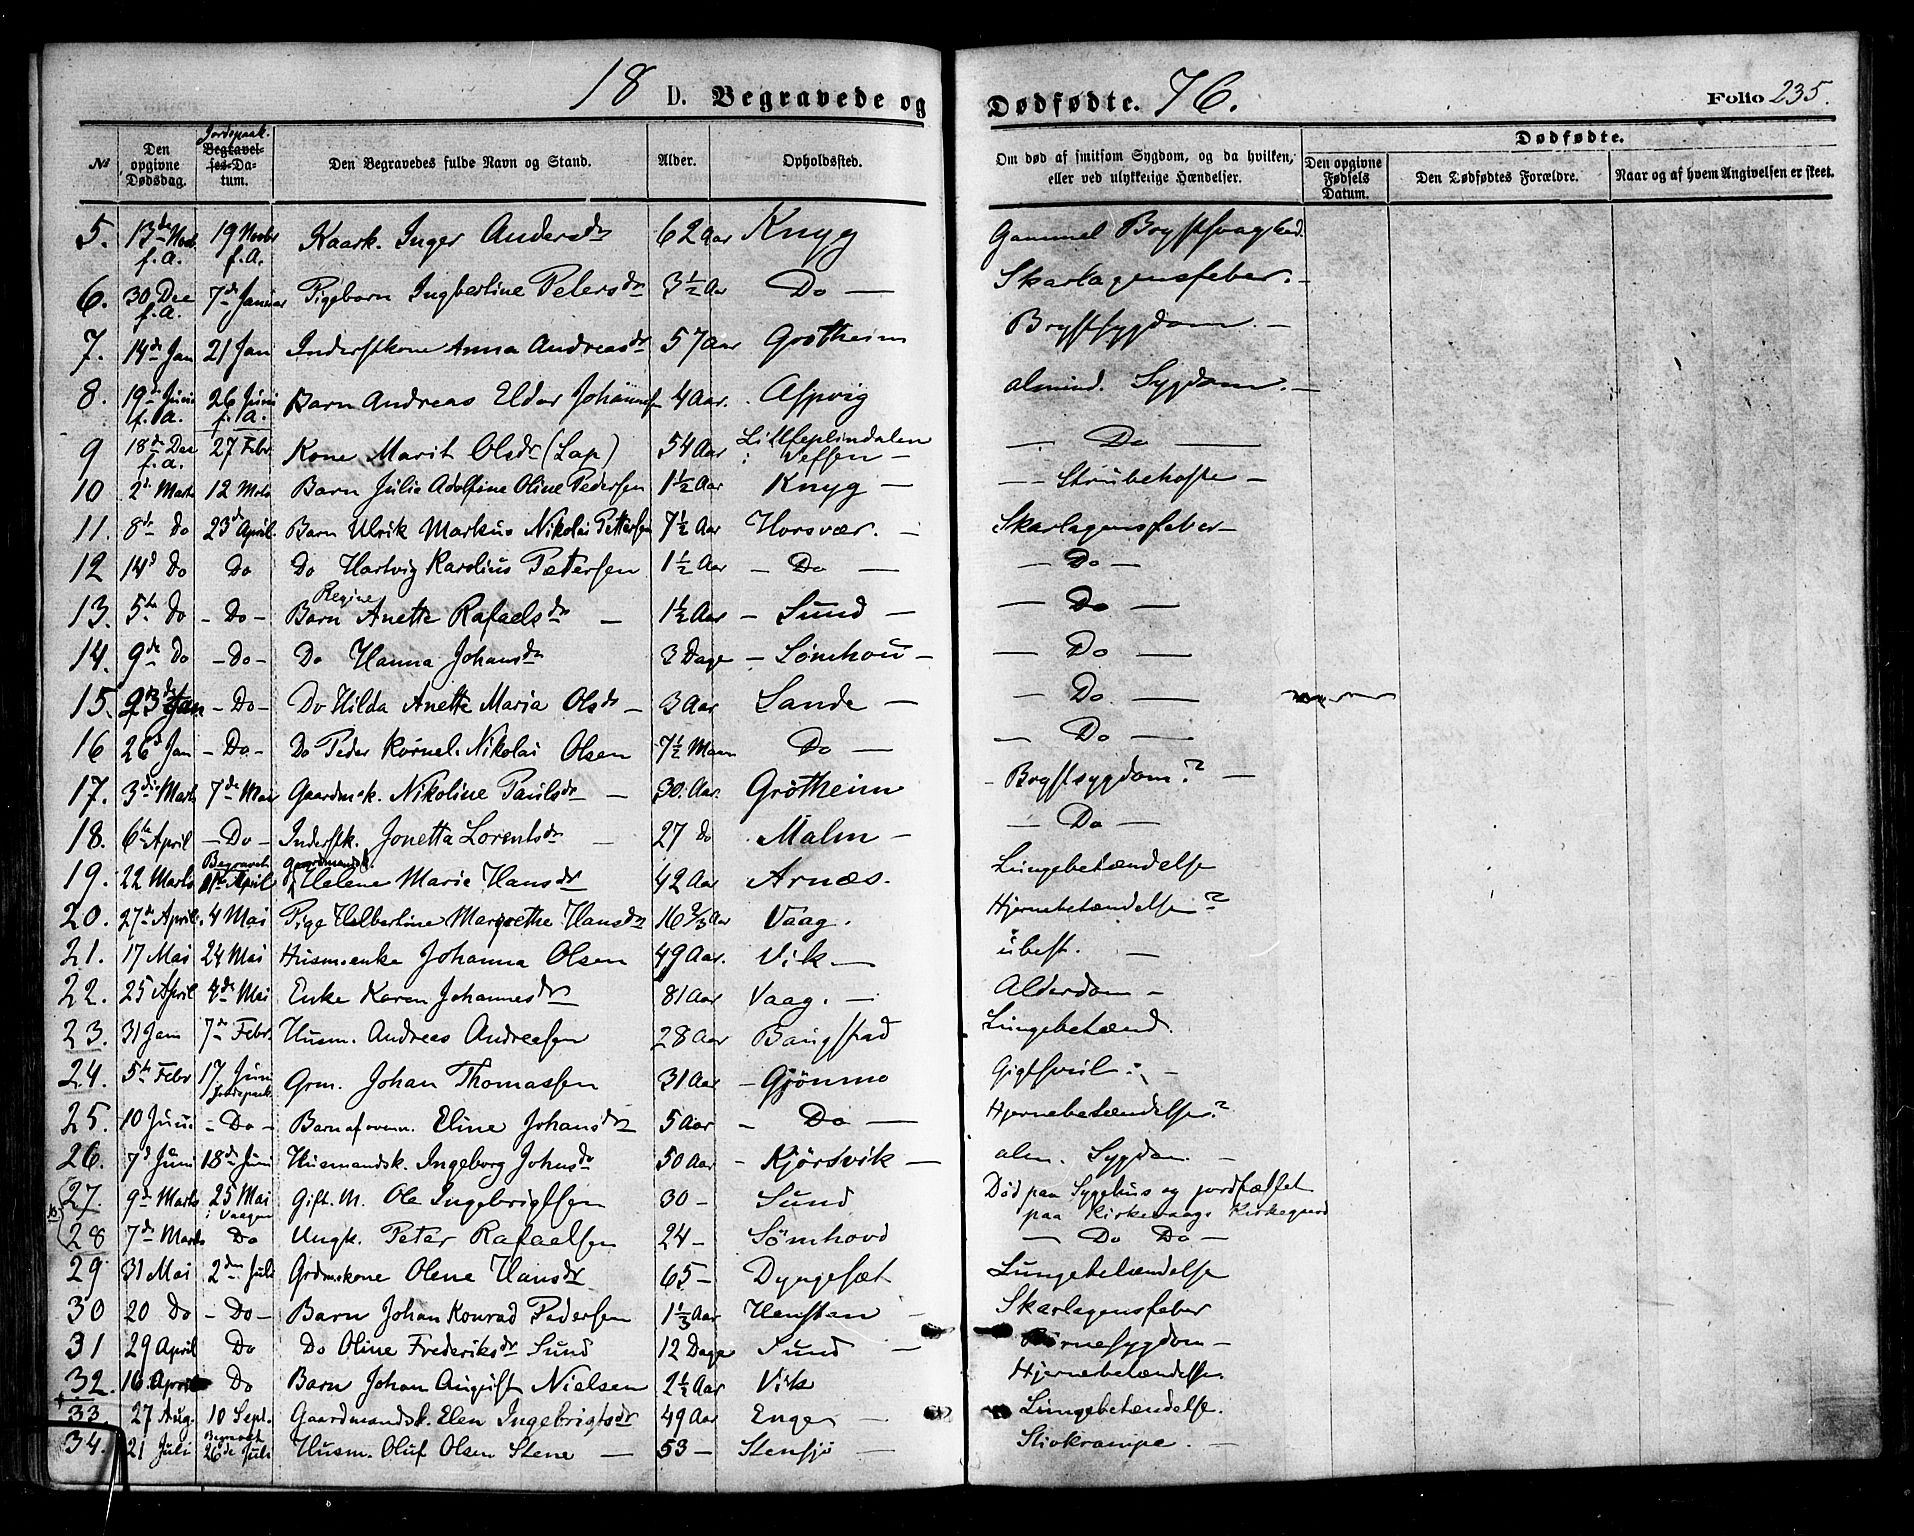 18 D. Begravede og Dødfødte. 76. Folio 235.
Jordspaak.
Dødfødte.
№ Den opgivne Dødsdag. Begravelses-Datum. Den Begravedes fulde Navn og Stand. Alder. Opholdssted. Om død af smitsom Sygdom, og da hvilken, eller ved ulykkelige Hændelser. Den opgivne Fødsels Datum. Den Dødfødtes Forældre. Naar og af hvem Angivelsen er skeet.
5. 13de Novb f.A. 19 Novbr f.A. Kaark. Inger Andersdr 62 Aar Knyg Gammel Brystsvaghed.
6. 30 Dec f.A. 7de Januar Pigebarn Ingberline Petersdr 3½ Aar Do — Skarlagensfeber. —
7. 14de Jan 21 Jan Inderstkone Anna Andreasdr 57 Aar Grøtheim Brystsygdom. —
8. 19de Juni f.A. 26 Juni f.A. Barn Andreas Eldor Johannes 4 Aar. Aspvig almind. Sygdom. —
9 18de Dec f.a. 27 Febr Kone Marit Olsdr (Lap) 54 Aar Lillfeplindalen i Vefsen — — Do —
10 2de Marts 12 Mrts Barn Julie Adolfine Oline Pedersen 1½ Aar Knyg — — Strubehoste —
11. 8de do 23de April. Barn Ulrik Markus Nikolai Pettersen 7½ Aar Horsvær. — Skarlagensfeber —
12 14d Do Do Do Hartvig Karolius Petersen 1½ Aar — Do — — Do —
13. 5te Do — Do — Barn Regine Anette Rafaelsdr — 1½ Aar — Sund — — Do —
14. 9de Do — Do — Do Hanna Johansdr 3 Dage — Sømhou — — Do —
15. 23de Jan — Do — Do Hilda Anette Maria Olsdr — 3 Aar Sande — — Do —
16 26d Jan — Do — Do Peder Kornel. Nikolai Olsen 7½ Maan Do — — Do —
17. 3die Marts 7de Mai Gaardmsk. Nikoline Paulsdr — 30. Aar. Grøtheim — Brystsygdom? —
18. 6te April — Do — Inderstk. Jonetta Lorentsdr 27 do Malm — — Do —
19. 22 Marts Begravet 1ste April Gaardmandsk. Helene Marie Hansdr 42 Aar Arnæs. Lungebetændelse
20. 27de April. 4 Mai Pige Helbertine Margrethe Hansdr 16 2/3 Aar Vaag. Hjernebetændelse?
21. 17 Mai 24 Mai Husm.enke Johanna Olsen 49 Aar. Vik — ubest. —
22. 25 April 4de Mai Enke Karen Johannesdr 81 Aar Vaag. — Alderdom —
23. 31 Jan 7de Febr. Husm. Andreas Andreasen 28 Aar Bangstad Lungebetænd.
24. 5te Febr 17 Juni Jordspaak. Grm. Johan Thomassen 31 Aar — Gjønmo Gigtfeul. —
25. 10 Juni — Do — Barn af ovenn. Eline Johansdr 5 Aar — Do — Hjernebetændelse?
26. 7d Juni 18de Juni Husmandsk. Ingeborg Johnsdr 50 Aar — Kjørsvik — alm. Sygdom. —
27. 9de Marts 25 Mai i Vaagen Gift. M. Ole Ingebrigtsen 30 — Sund Død paa Sygehus og jordfæstet paa Kirkevaags Kirkegaard
28 7de Marts Do Ungk. Peter Rafaelsen 24 — Sømhovd — Do Do —
29 31 Mai 2den Juli Grdmskone Olene Hansdr 65 — Dyrjesæt Lungebetændelse
30 20 Do — Do — Barn Johan Konrad Pedersen 1⅓ Aar Henstan — Skarlagensfeber
31 29 April Do Do Oline Frederiksdr Sund 12 Dage Sund — Børnesygdom —
32. 16 April Do Barn Johan August Nielsen 2½ Aar Vik Hjernebetændelse.
33. 27 Aug. 10 Sept. Gaardmandsk. Elen Ingebrigtsdr 49 Aar Enge — Lungebetændelse.
34. 21 Juli Begravet 26de Juli Husm. Oluf Olsen Stene — 53 — Stensjø Stivkrampe. —